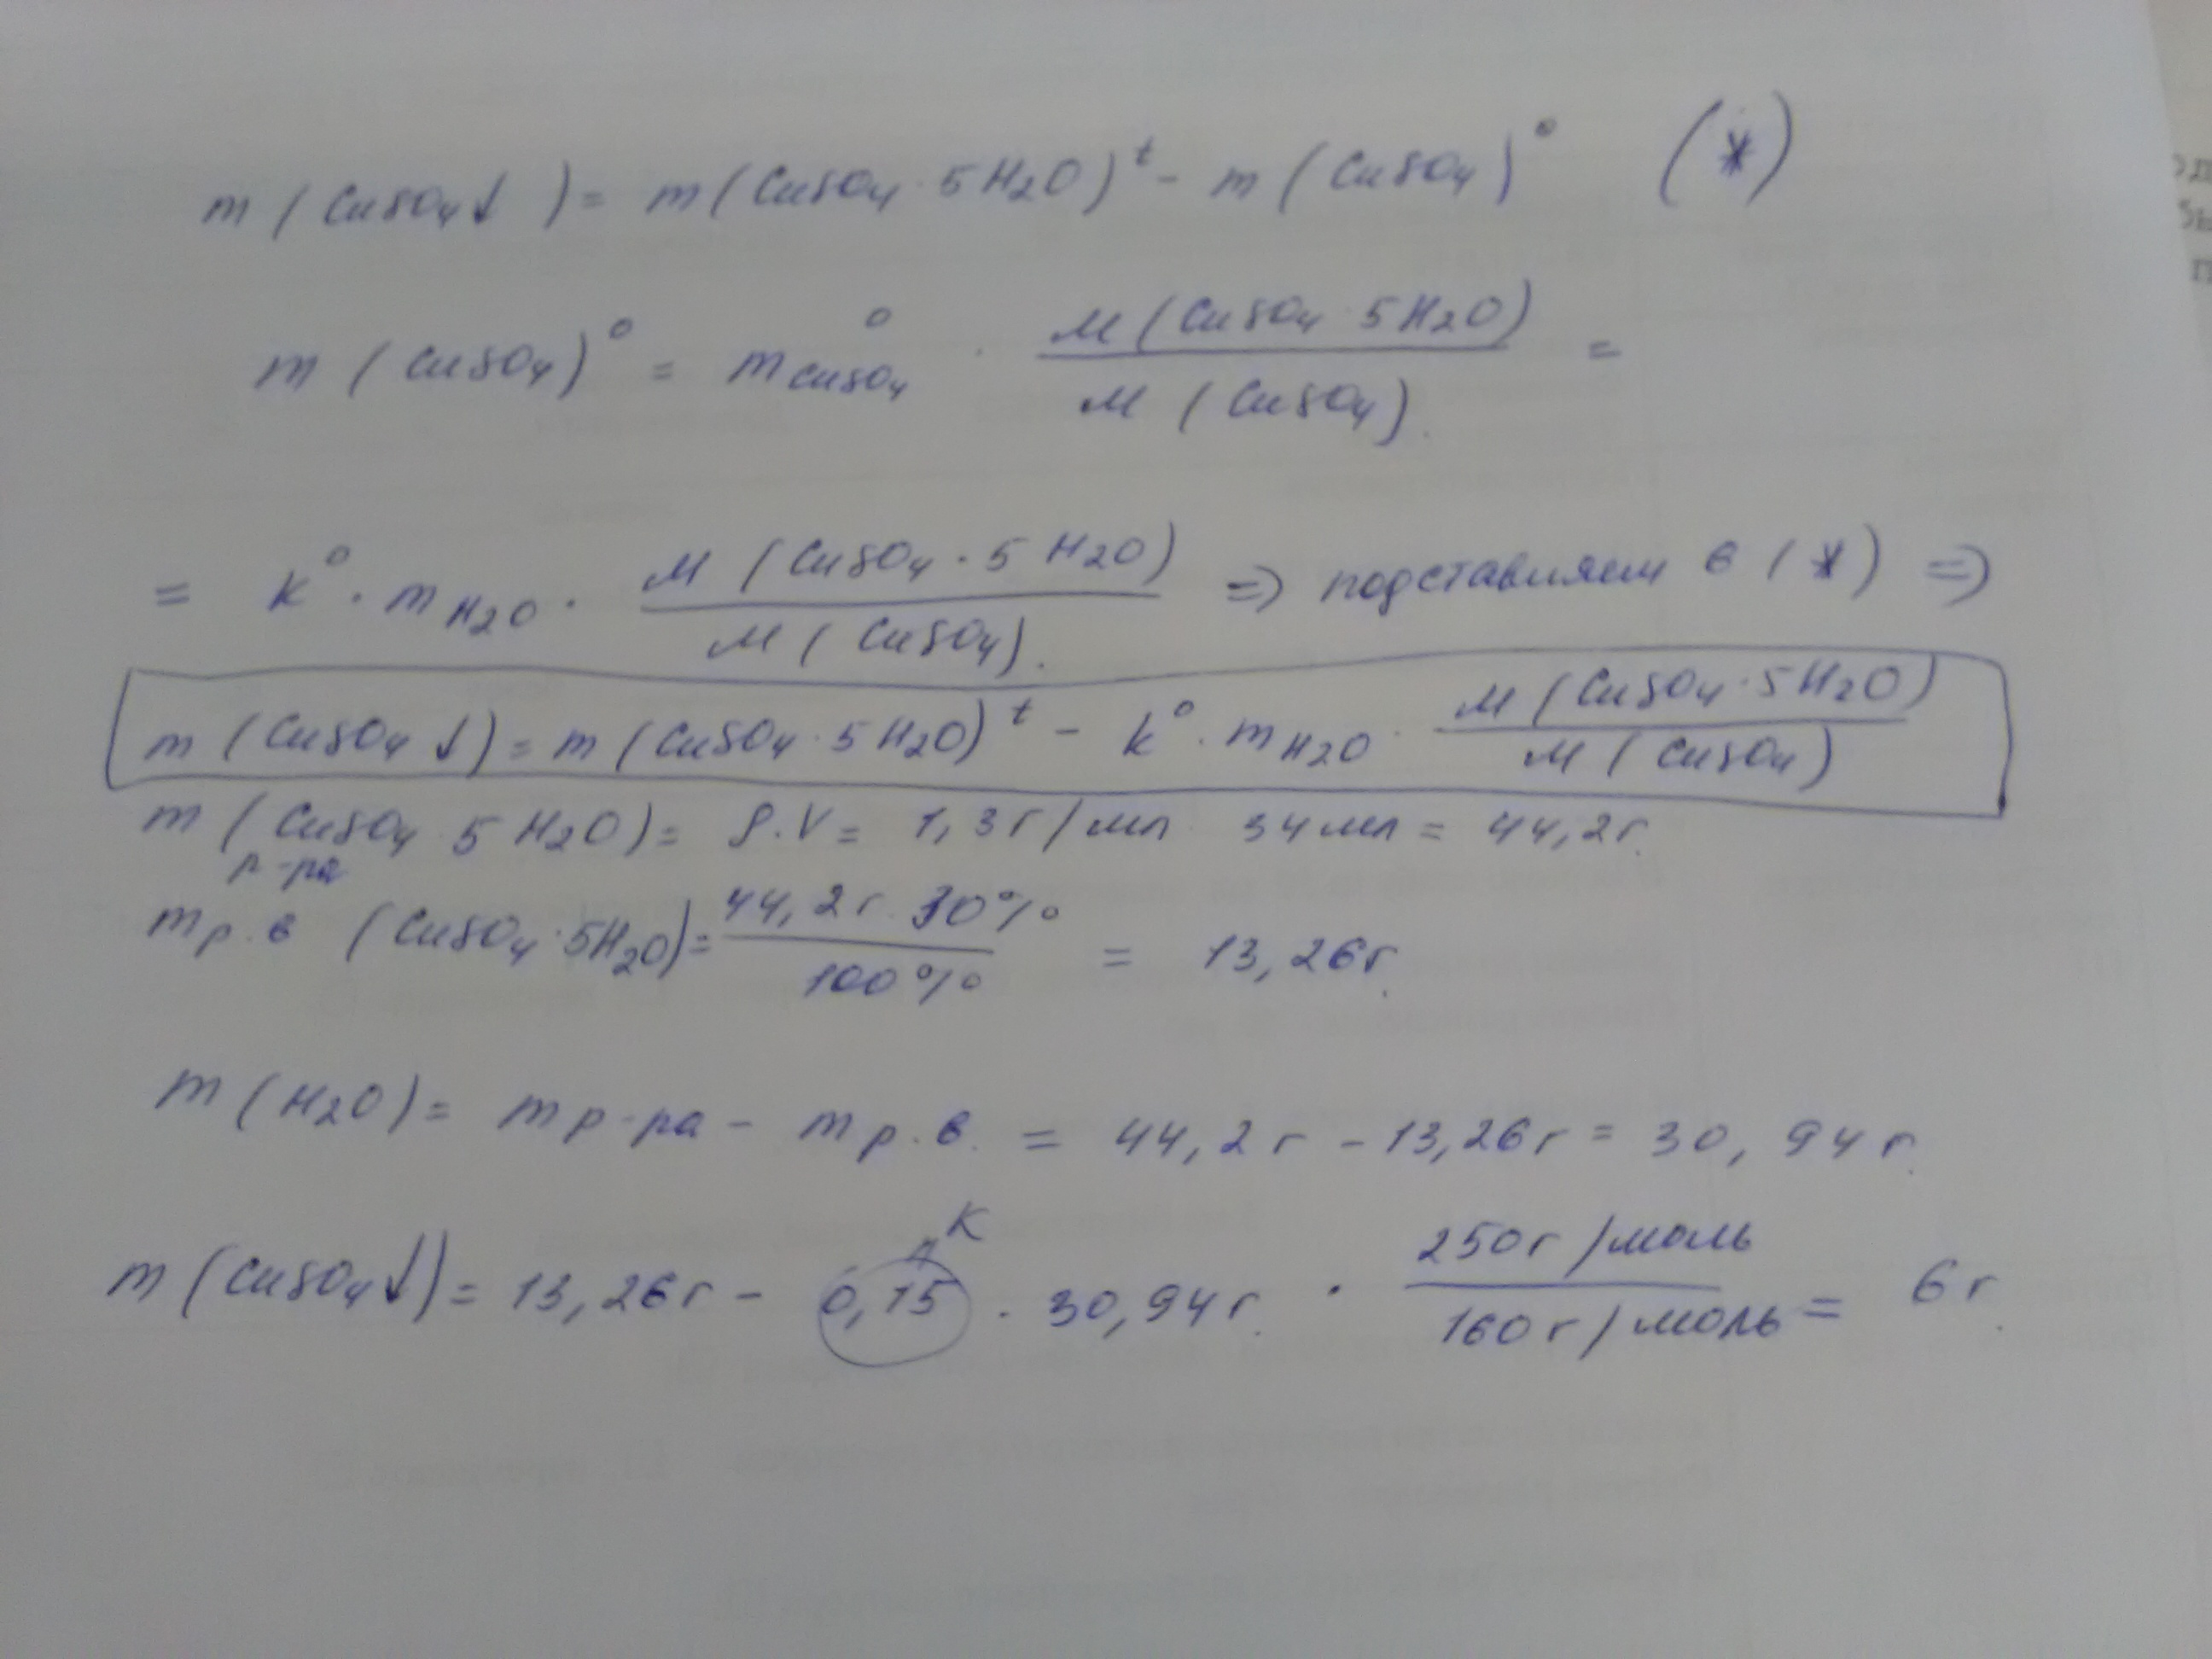 m (CuSO₄↓) = m (CuSO₄ · 5H₂O)ᵗ - m (CuSO₄)° (*)
m (CuSO₄)° = m°CuSO₄ · M (CuSO₄ 5H₂O) / M (CuSO₄) =
= k° · mH₂O · M (CuSO₄ · 5 H₂O) / M (CuSO₄). => подставляем в (*) =>
m (CuSO₄↓) = m (CuSO₄ · 5H₂O)ᵗ - k° · mH₂O · M (CuSO₄ · 5H₂O) / M (CuSO₄)
m р-ра (CuSO₄ 5H₂O) = ρ·V = 1,3 г/мл · 34 мл = 44,2 г.
m р.в (CuSO₄ · 5H₂O) = 44,2 г · 30% / 100% = 13,26 г.
m (H₂O) = m р-ра - m р.в. = 44,2 г - 13,26 г = 30,94 г.
K
m (CuSO₄↓) = 13,26 г - 0,15 · 30,94 г · 250 г/моль / 160 г/моль = 6 г.
од
бы
п